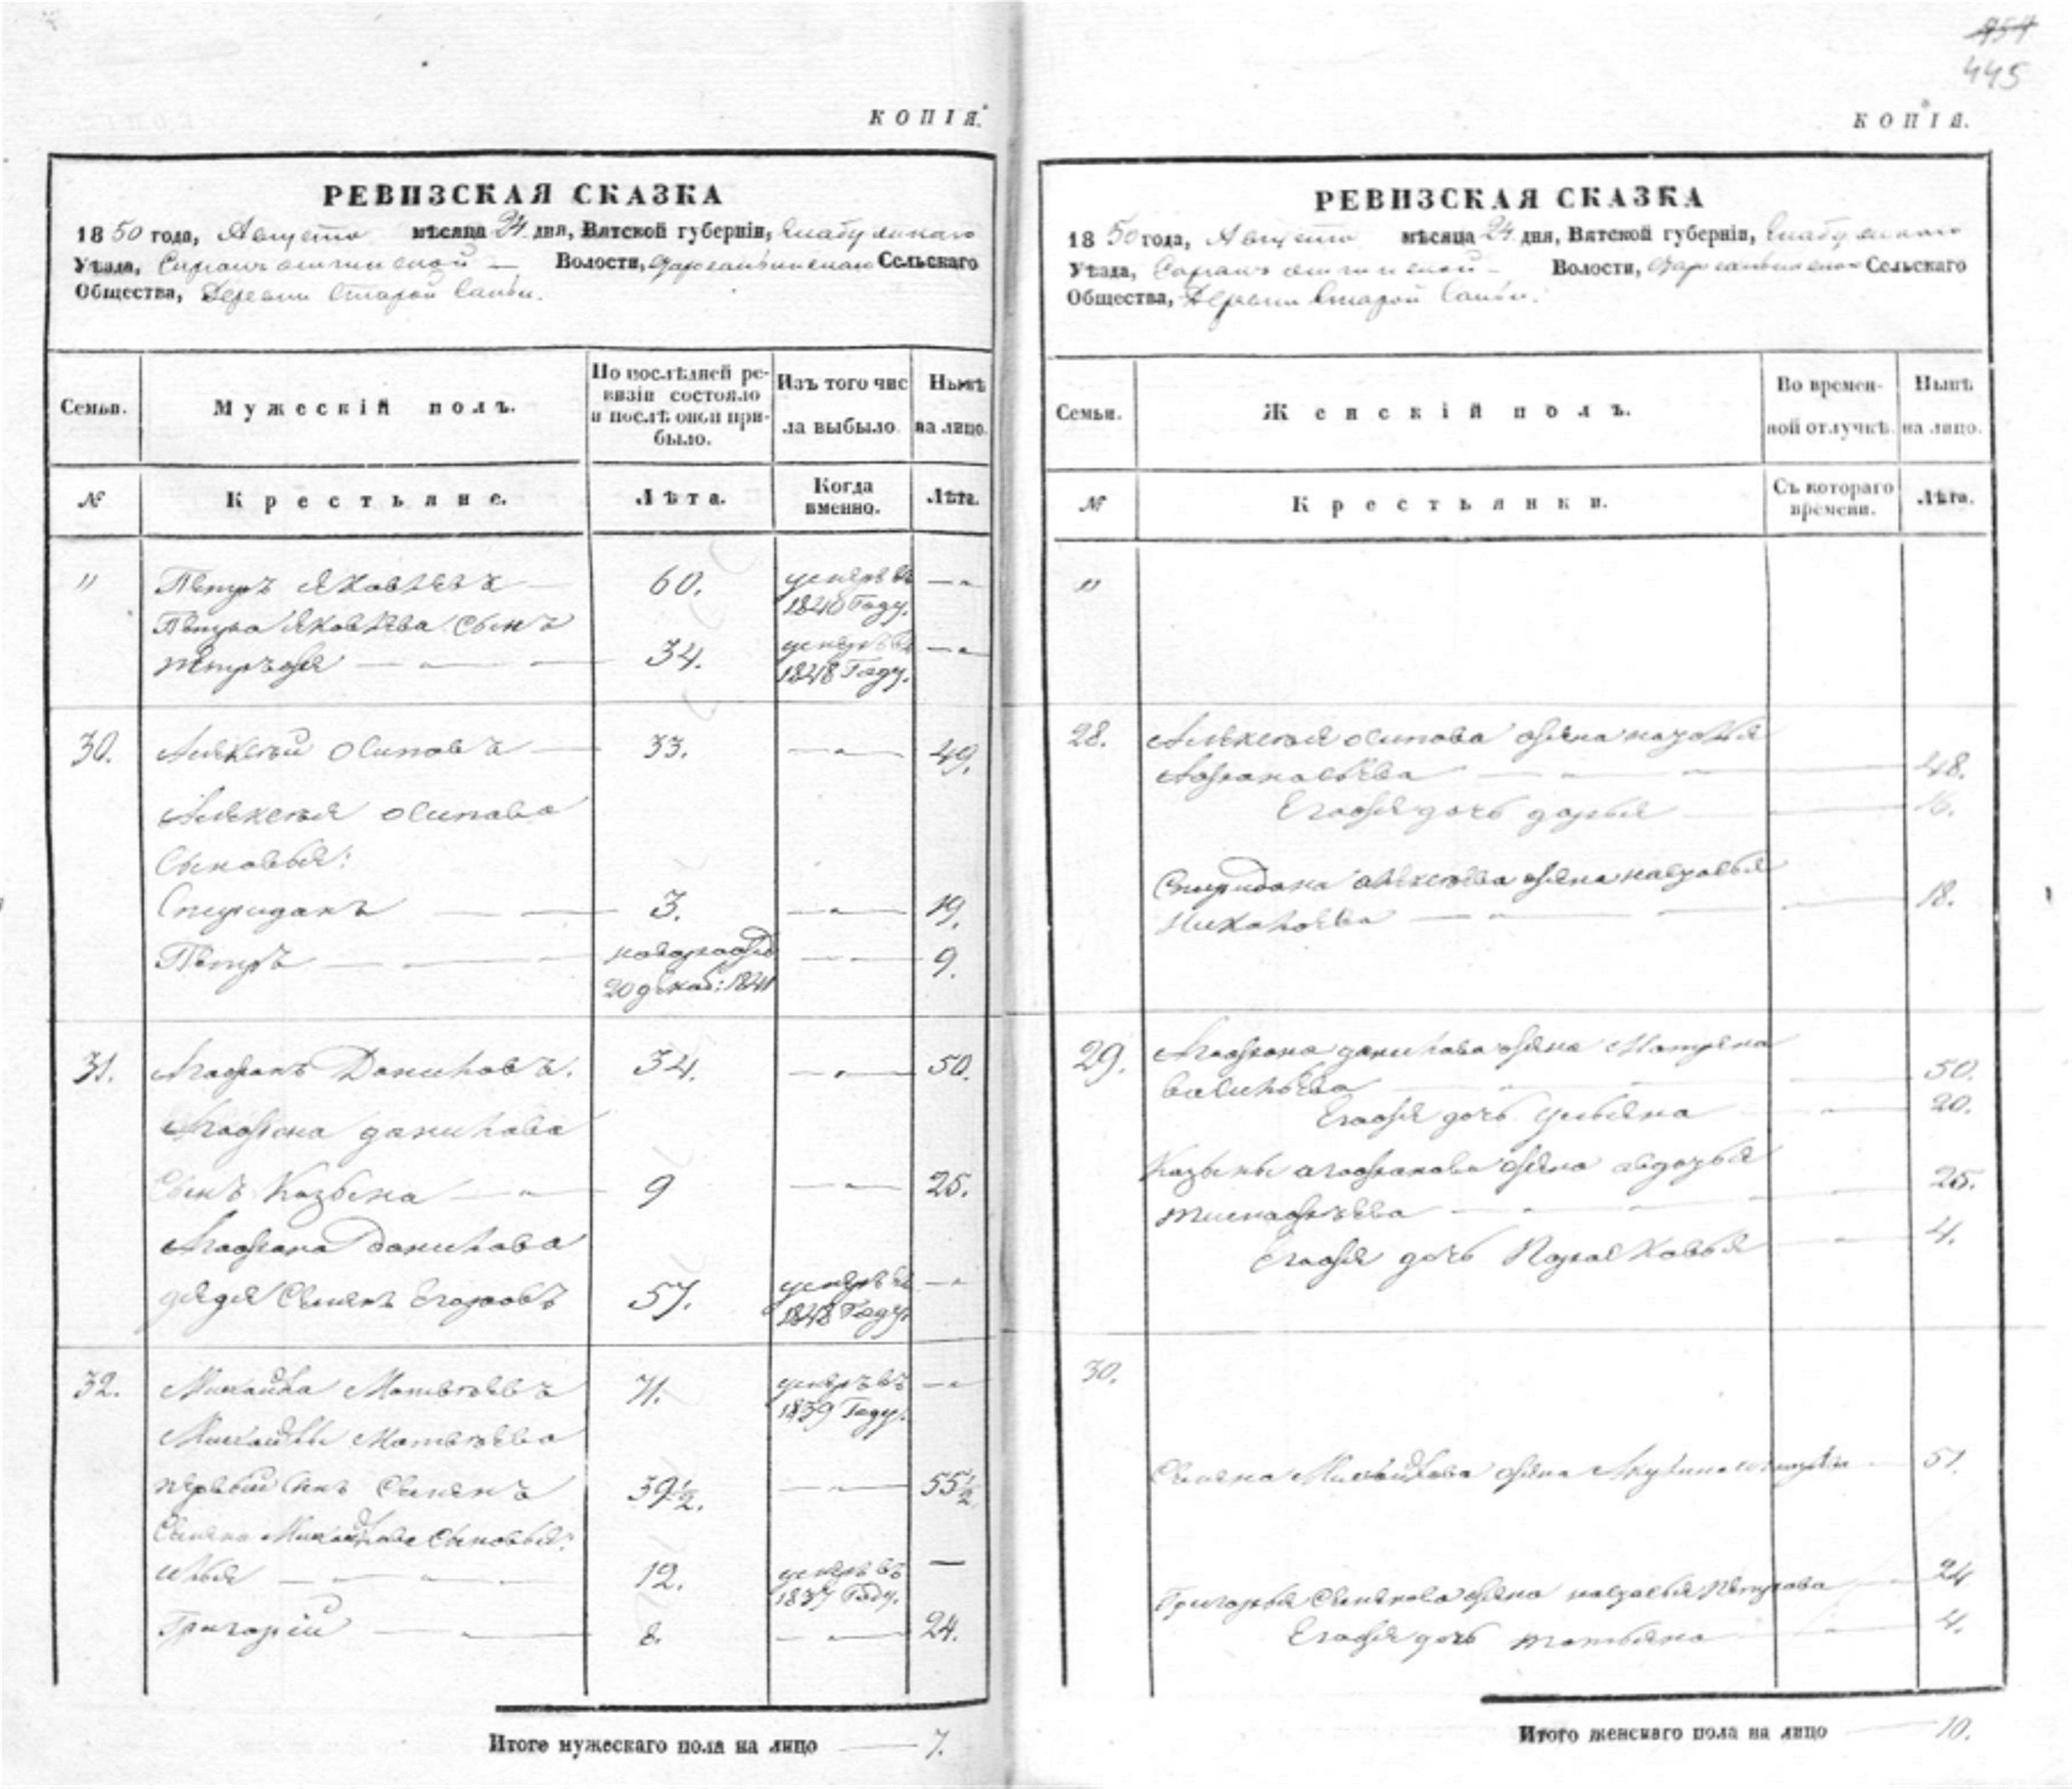 454
445
КОПІЯ.
РЕВИЗСКАЯ СКАЗКА
1850 года, Августа мѣсяца 24 дня, Вятской губерніи, Елабужскаго
Уѣзда, Волости, Сельскаго
Общества, Деревни Старой
Семьи.
Мужескій полъ.
По послѣдней ре-
визіи состояло
и послѣ онои при-
было.
Изъ того чис
ла выбыло
Нынѣ
на лицо.
№
Крестьяне.
Лѣта.
Когда
именно.
Лѣта.
" Петръ Яковлевъ 60. умеръ въ
1840 Году.
Петра Яковлева сынъ
34. умеръ въ
1848 Году.
30. Алексѣй Осиповъ 33. 49.
Алексѣя Осипова
Сыновья:
Спиридонъ 3. 19.
Петръ новорожд 9.
20 декаб: 1841
31. Агафонъ Даниловъ. 34. 50.
Агафона Данилова
Сынъ Козьма 9 25.
Агафона Данилова
дядя Семенъ Егоровъ 57. умеръ въ
1848 Году.
32. Михайла Матвѣевъ 71. умеръ въ
1839 Году.
Михайлы Матвѣева
первый сынъ Семенъ 39½. 55½
Семена Михайлова Сыновья:
Илья 12. умеръ въ
1837 Году.
Григорій 8. 24.
Итого мужескаго пола на лицо 7.
КОПІЯ.
РЕВИЗСКАЯ СКАЗКА
1850 года, Августа мѣсяца 24 дня, Вятской губерніи, Елабужскаго
Уѣзда, Волости, Сельскаго
Общества, Деревни Старой
Семьи.
Женскій полъ.
Во времен-
ной отлучкѣ.
Нынѣ
на лицо.
№
Крестьянки.
Съ котораго
времени.
Лѣта.
"
28. Алексѣя Осипова жена
Афанасьева 48.
Егожя дочь Дарья 16.
Спиридона Алексѣева жена Настасья
Николаева 18.
29. Агафона Данилова жена Матрена
Васильева 50.
Егожя дочь Ульяна 20.
Козьмы Агафонова жена Авдотья
Тимофѣева 25.
Егожя дочь Парасковья 4.
30.
Семена Михайлова жена Акулина 51.
Григорья Семенова жена Настасья Петрова 24
Егожя дочь Татьяна 4.
Итого женскаго пола на лицо 10.